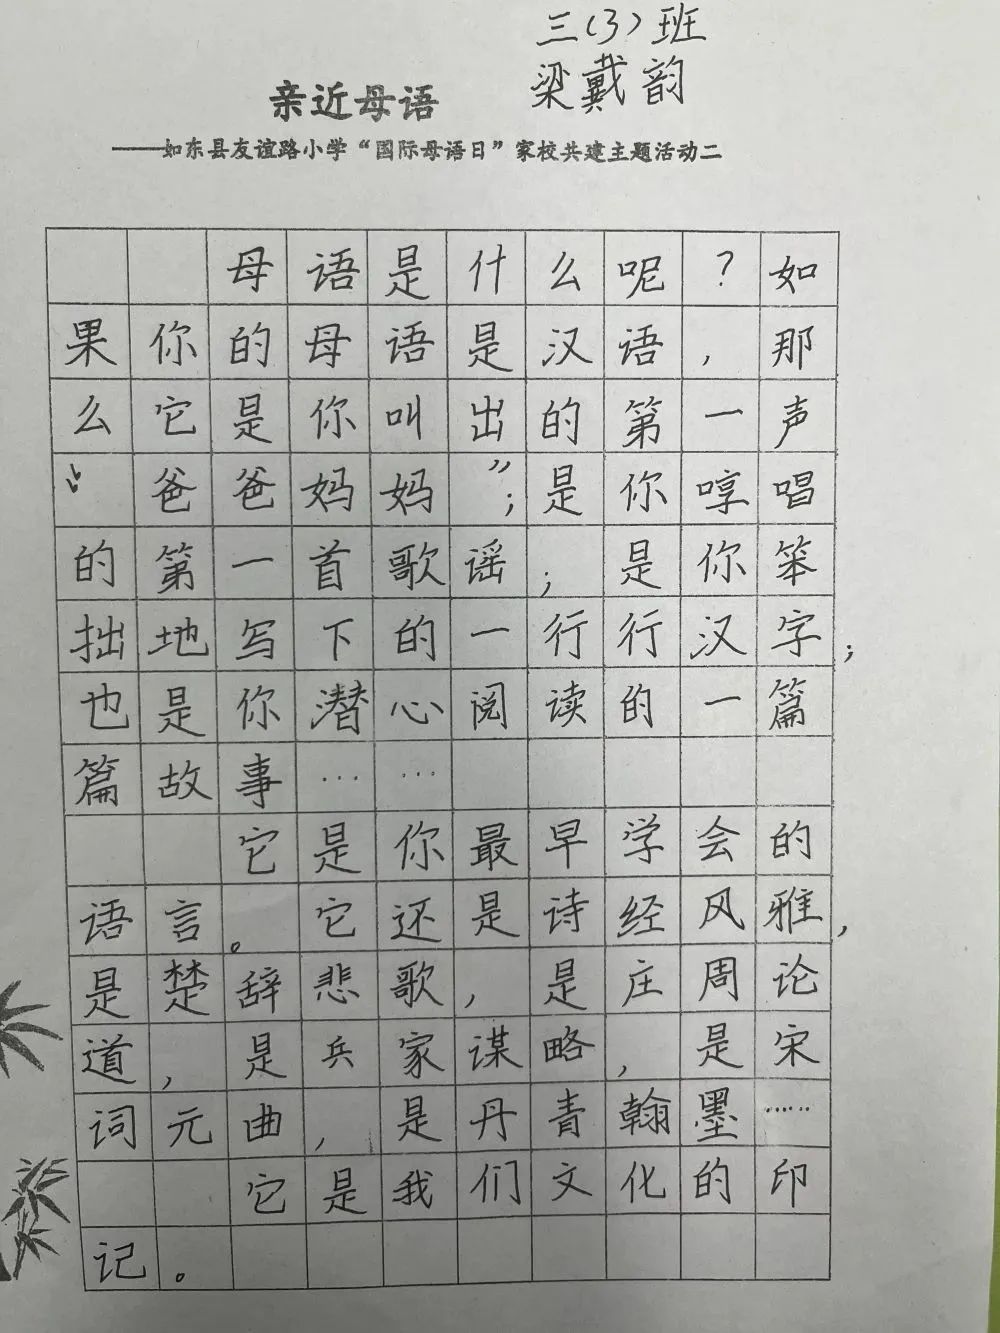 三(3)班
梁戴韵
亲近母语
——如东县友谊路小学“国际母语日”家校共建主题活动二
母语是什么呢?如
果你的母语是汉语,那
么它是你叫出的第一声
“爸爸妈妈”;是你哼唱
的第一首歌谣;是你笨
拙地写下的一行行汉字;
也是你潜心阅读的一篇
篇故事……
它是你最早学会的
语言。它还是诗经风雅,
是楚辞悲歌,是庄周论
道,是兵家谋略,是宋
词元曲,是丹青翰墨……
它是我们文化的印
记。